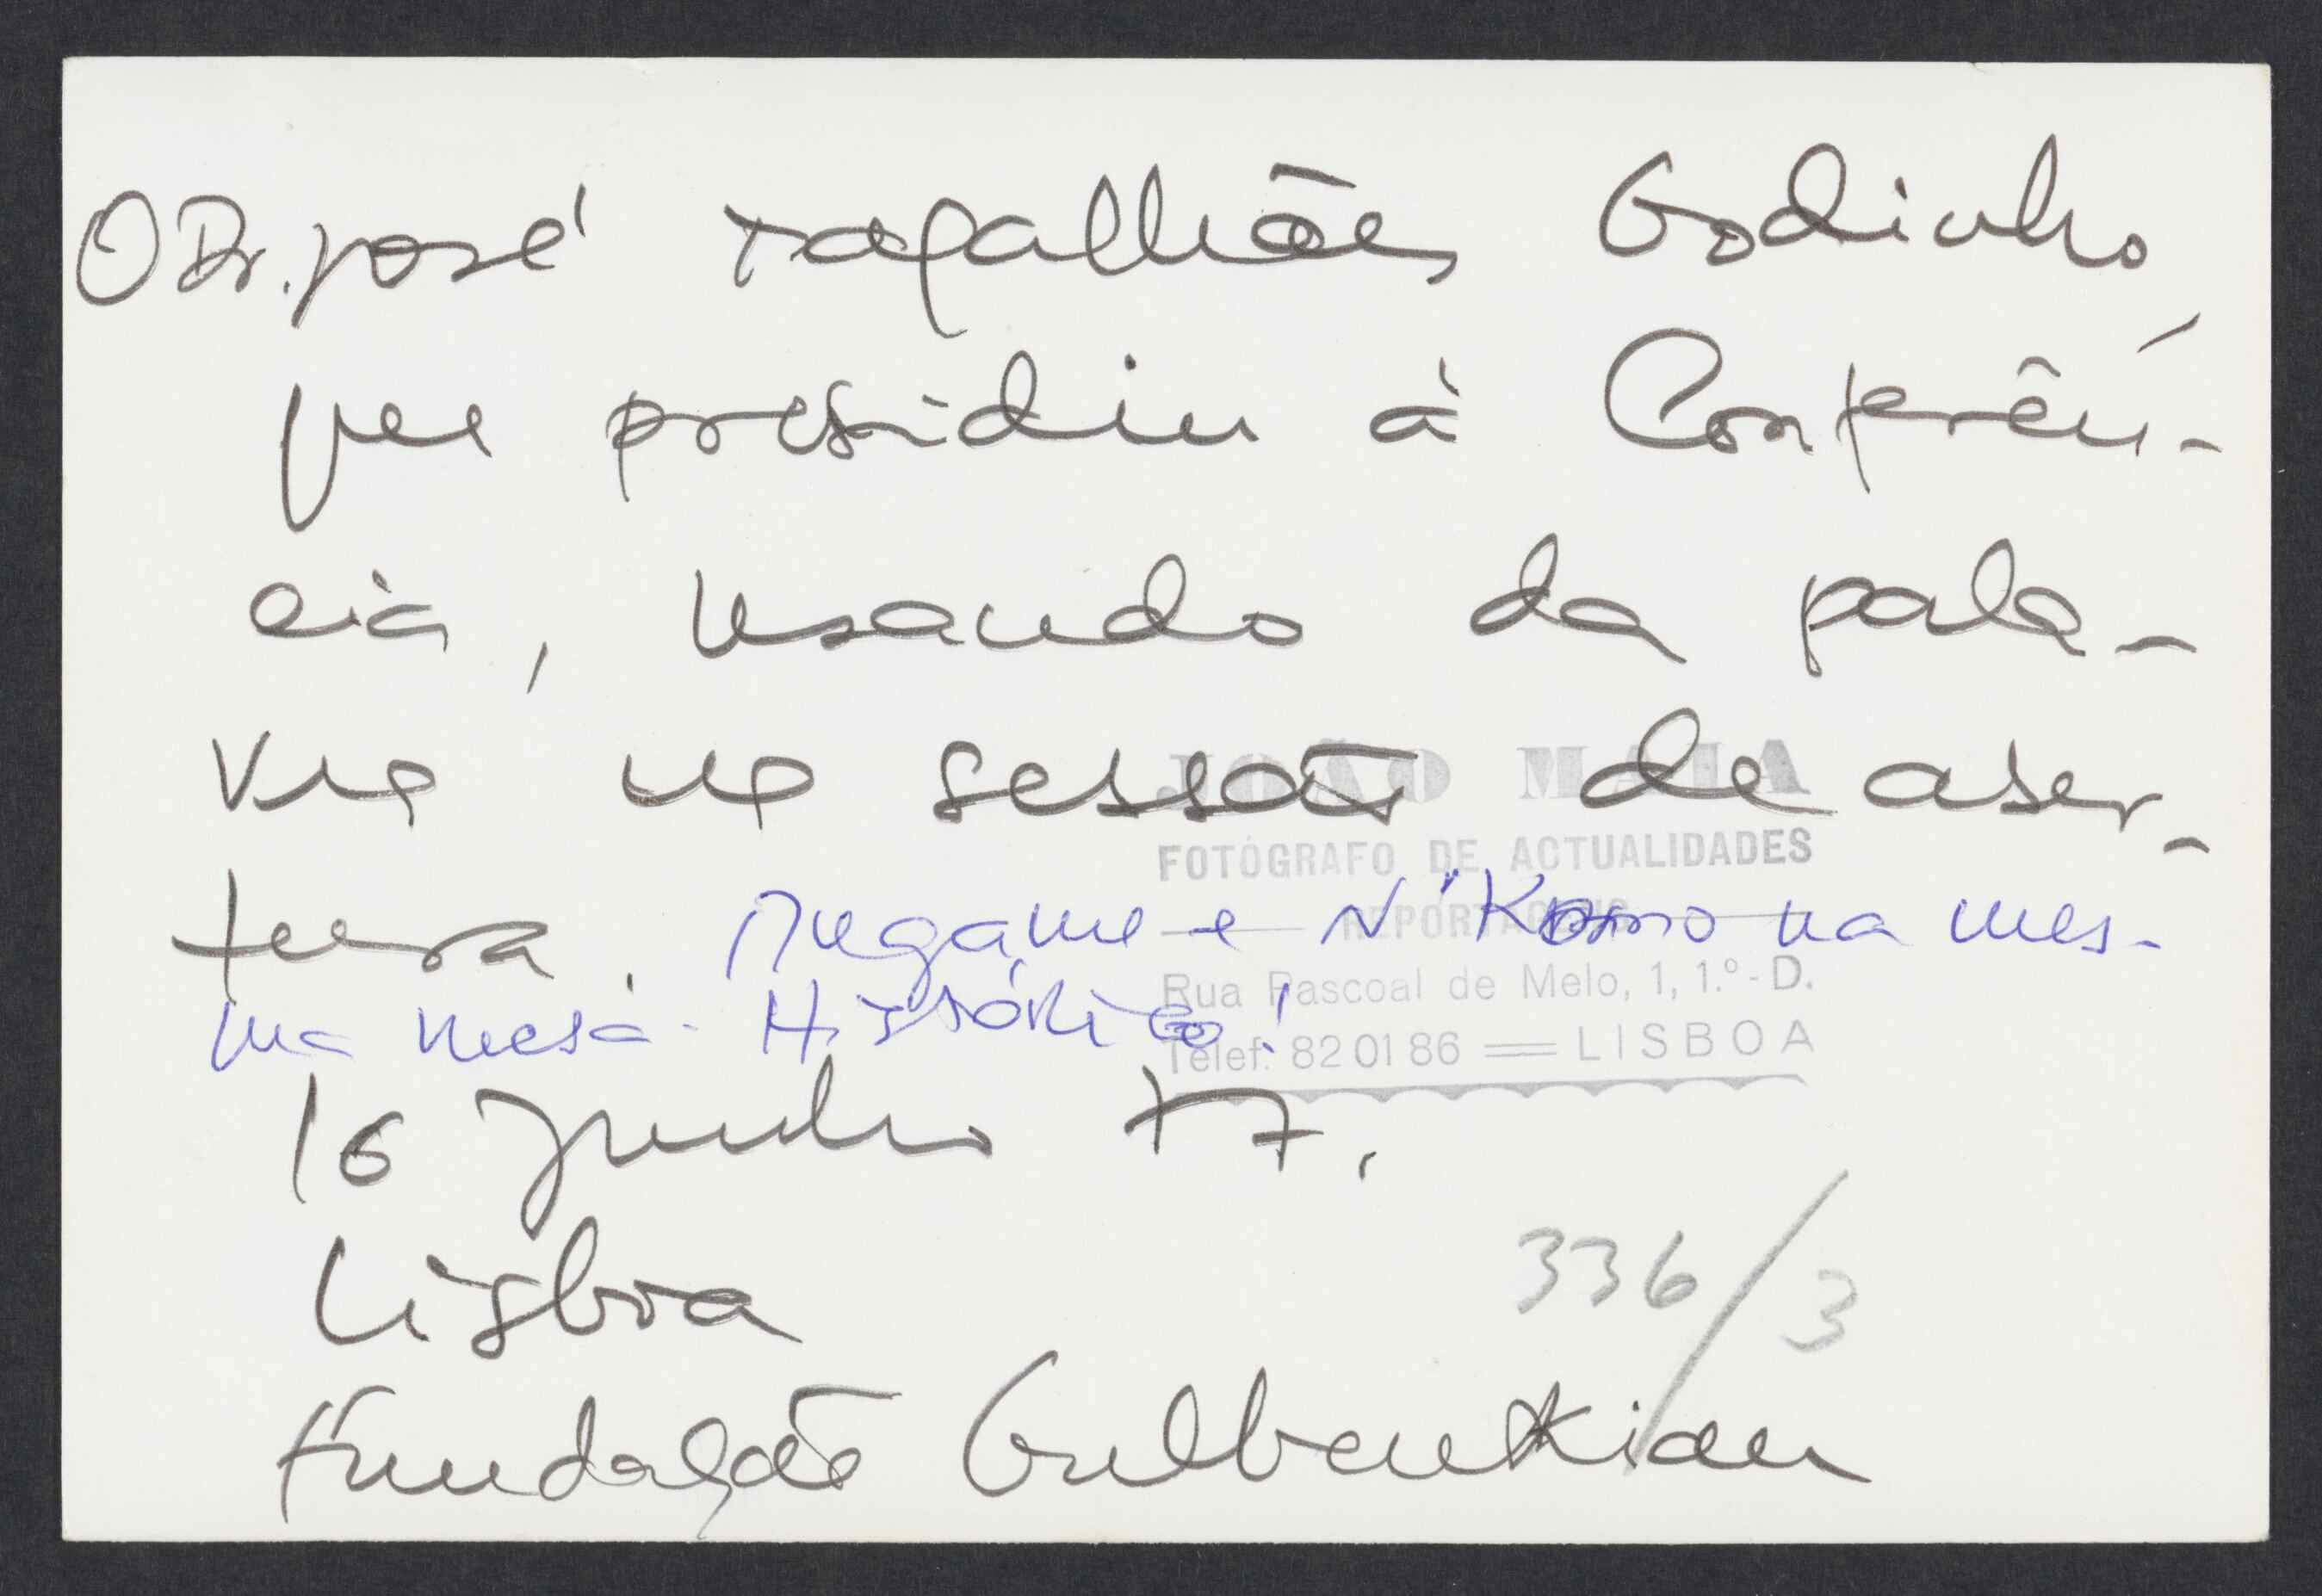 O Dr. José Magalhães Godinho,
que presidiu à Conferên-
cia, usando da pala-
vra na sessão de aber-
tura. Mugame e N'Komo na mes-
ma mesa. Histórico!
16 Junho 77.
Lisboa
Fundação Gulbenkian
336/3
JOÃO MAIA
FOTÓGRAFO DE ACTUALIDADES
REPORTAGENS
Rua Pascoal de Melo, 1, 1.º-D.
Telef. 82 01 86 = LISBOA